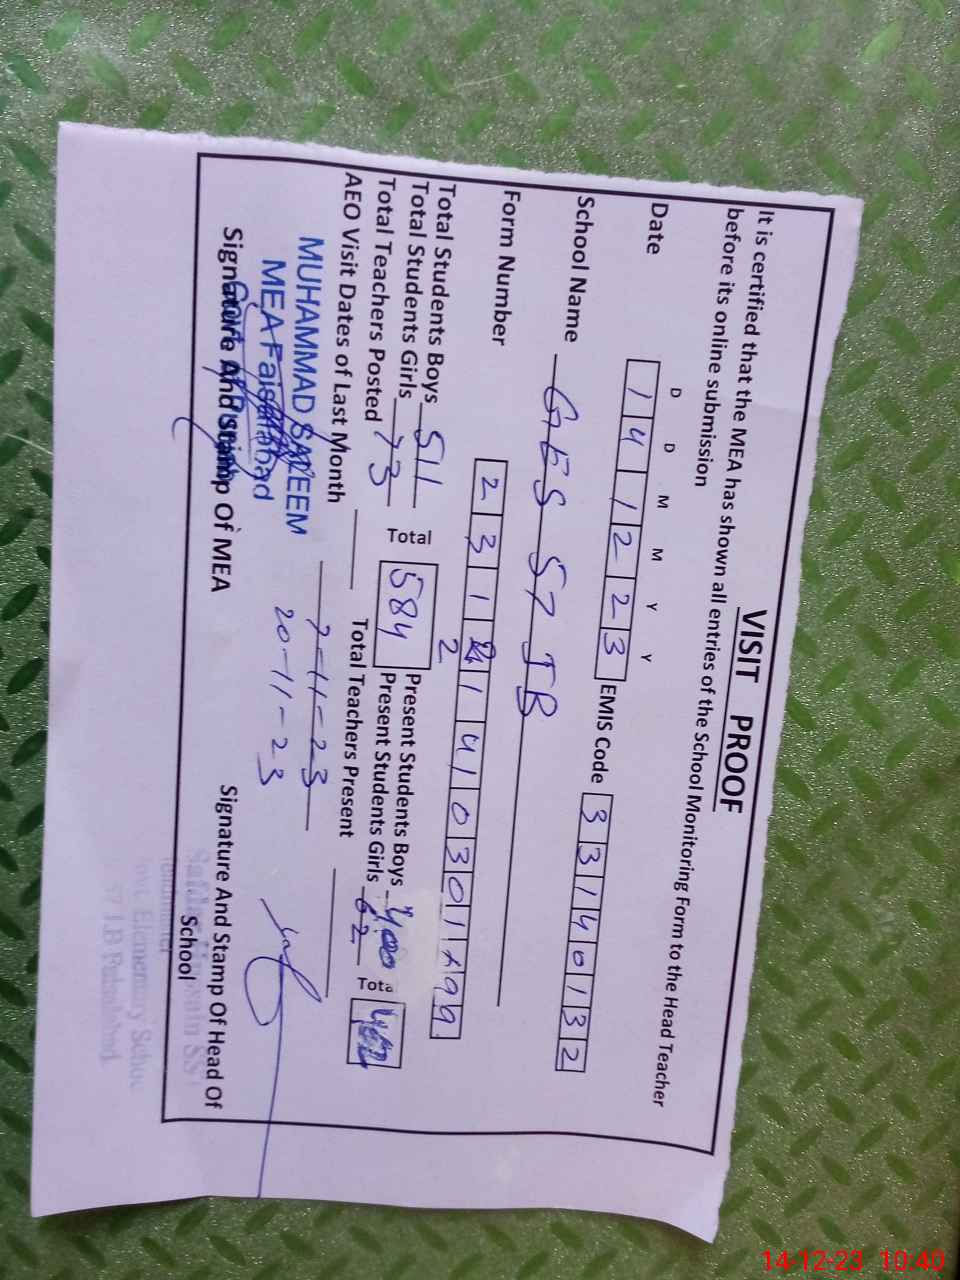 VISIT PROOF
It is certified that the MEA has shown all entries of the School Monitoring Form to the Head Teacher
before its online submission
D D M M Y Y
Date 14 12 23 EMIS Code 33140132
School Name GES 57 JB
Form Number 2311 1410301
2
Total Students Boys 511 Total 584 Present Students Boys 400 Tota 462
Total Students Girls 73 Present Students Girls 62
Total Teachers Posted Total Teachers Present
AEO Visit Dates of Last Month 7-11-23
20-11-23
MUHAMMAD SALEEM
MEA Faisalabad
Signature And Stamp Of MEA Signature And Stamp Of Head Of
School
Elementary School
57 J.B Faisalabad
14-12-23 10:40